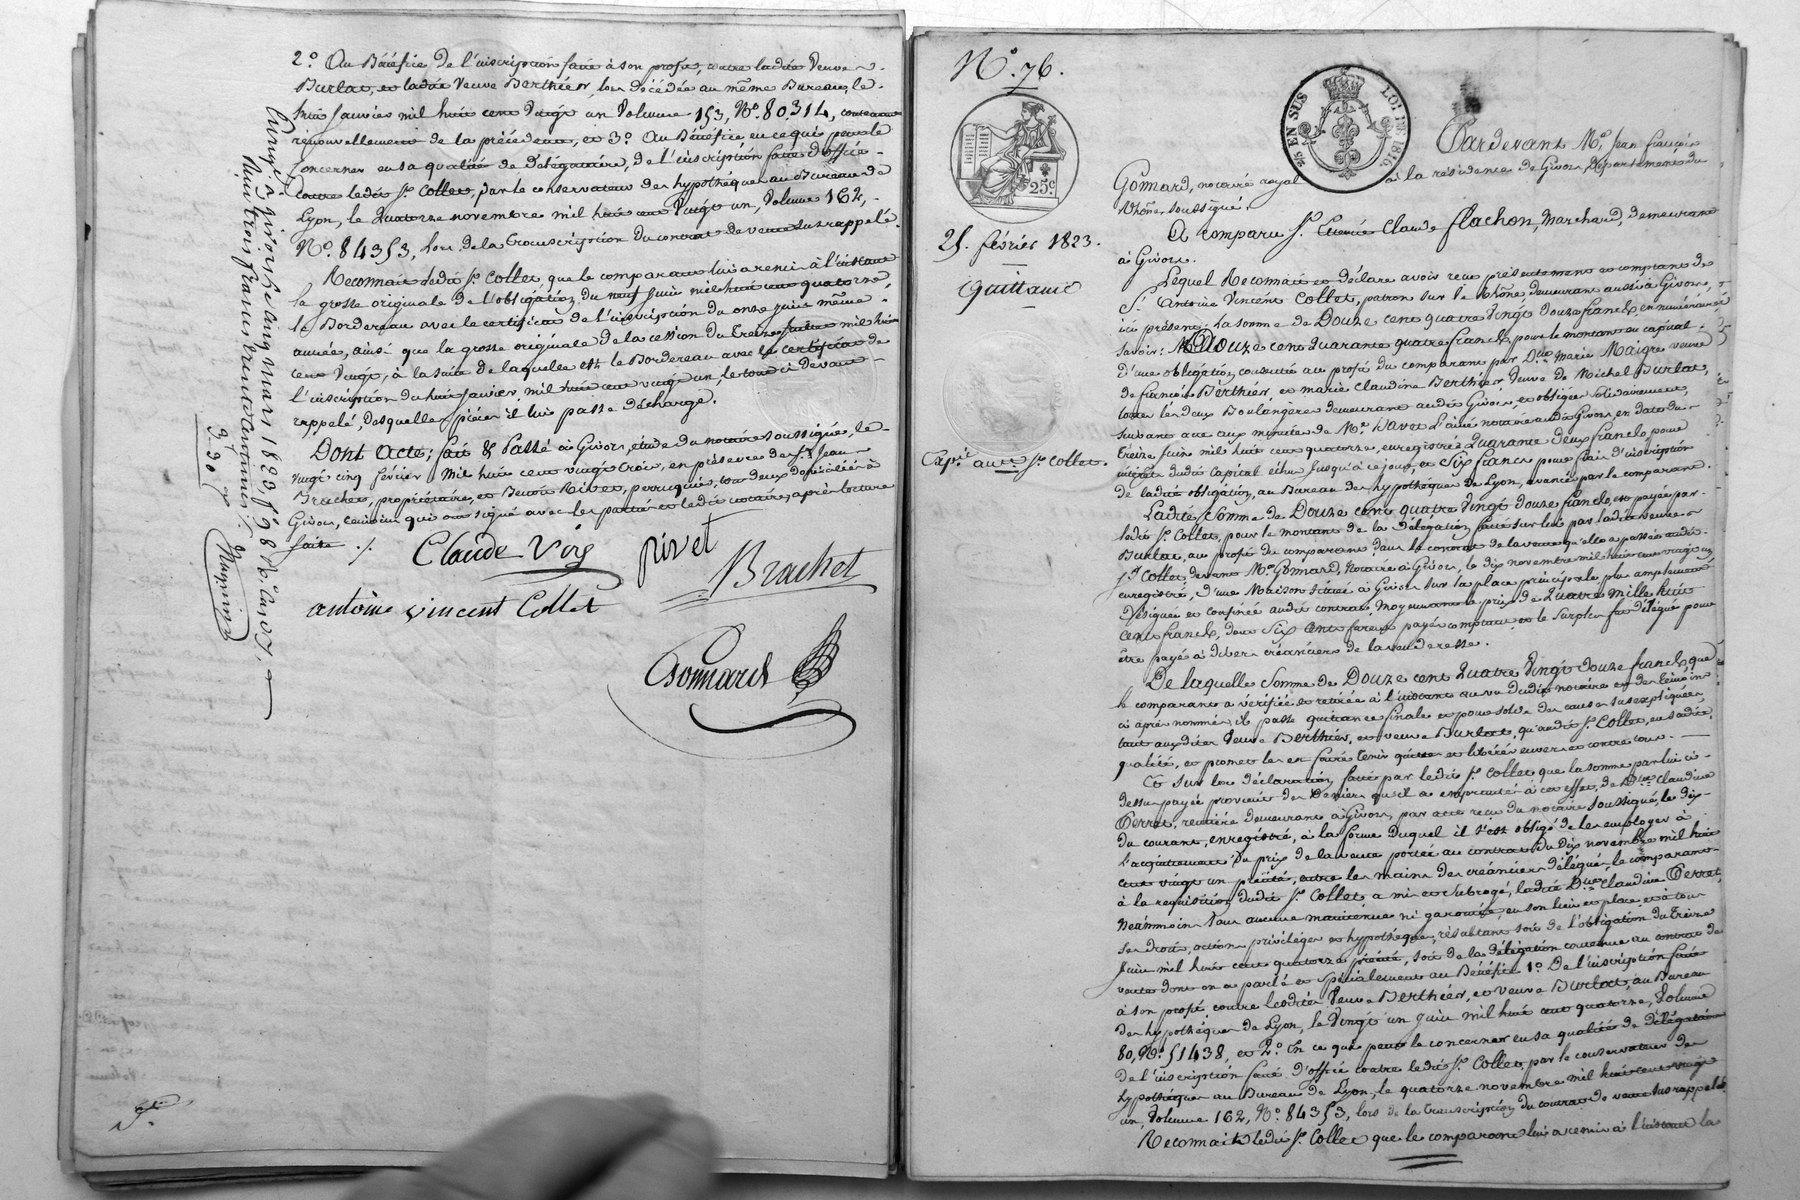 2.° Au Bénéfice de l'inscription faite à son profit, contre ladite Veuve
Burlat, et ladite Veuve Berthier lors décédée au même Bureau, le
huit Janvier mil huit cent Vingt un Volume 153, N.° 80,314, contenant
renouvellement de la précédente, et 3.° Au Bénéfice, en ce qui peut le
concerner en sa qualité de délégataire, de l'inscription faite d'office
contre ledit S.r Collet, par le conservateur des hypothèques au Bureau de
Lyon, le quatorze novembre mil huit cent Vingt un, Volume 162,
N.° 84353, lors de la transcription du contrat de vente sus rappelé.
Reconnait ledit S.r Collet, que le comparant lui a remis à l'instant
la grosse originale de l'obligation du neuf Juin mil huit cent quatorze,
le Bordereau avec le certificat de l'inscription du onze juin même
année, ainsi que la grosse originale de la cession du treize Juillet mil huit
cent Vingt, à la suite de laquelle est le Bordereau avec le certificat de
l'inscription du huit Janvier mil huit cent vingt un, le tout ci devant
rappelé, desquelles pièces il lui passe décharge.
Dont acte; fait & Passé à Givors, étude du notaire soussigné, le
vingt cinq février mil huit cent vingt trois, en présence de S.rs Jean
Brachet, propriétaire, et Benoit Rivet, perruquier, tous deux domiciliés à
Givors, témoins qui ont signé avec les parties et ledit notaire, après lecture
faite ./.
Claude Voig rivet
Brachet
antoine vincent Collet
Gonnard
N.° 76.
25.c
25 EN SUS LOI DE 1816
25. février 1823.
Quittance
Exp.é au S.r Collet.
Pardevant M.e Jean françois
Gonnard, notaire royal à la résidence de Givors, département du
Rhône, soussigné.
A Comparu S.r Etienne Claude Flachon, Marchand, demeurant
à Givors.
Lequel Reconnait et déclare avoir reçu présentement et comptant de
S.r Antoine Vincent Collet, patron sur le Rhône demeurant aussi à Givors,
ici présent, la somme de Douze cent quatre Vingt douze francs, en numéraire,
savoir: Douze cent quarante quatre francs pour le montant en capital
d'une obligation, consentie au profit du comparant par D.me Marie Maigre veuve
de françois Berthier, et marie claudine Berthier, Veuve de Michel Burlat,
toutes les deux Boulangères demeurant audit Givors, et obligées solidairement,
suivant acte aux minutes de M.e Javet L'ainé notaire audit Givors, en date du
treize Juin mil huit cent quatorze, enregistré, quarante deux francs pour
intérêts dudit capital échu jusqu'à ce jour, et Six francs pour frais d'inscription
de ladite obligation, au Bureau des hypothèques de Lyon, avancés par le comparant.
Ladite Somme de Douze cent quatre Vingt douze francs, est payée par
ledit S.r Collet, pour le montant de la délégation faite sur lui par ladite veuve
Burlat, au profit du comparant dans le contrat de la vente qu'elle a passée audit
S.r Collet, devant M.e Gonnard, Notaire à Givors, le dix novembre mil huit cent vingt un
enregistré, d'une Maison située à Givors sur la place principale plus amplement
désignée et confinée audit contrat, moyennant le prix de quatre mille huit
cent francs, dont Six Cent furent payés comptant et le Surplus fut délégué pour
être payé à divers créanciers de la venderesse.
De laquelle Somme de Douze cent quatre Vingt douze francs, que
le comparant a vérifiée et retirée à l'instant au vu dudit notaire et des témoins
ci après nommés, il passe quittance finale et pour solde des causes sus expliquées,
tant auxdites Veuve Berthier, et veuve Burlat, qu'audit S.r Collet, en sadite
qualité, et promet les en faire tenir quittes et libérés envers et contre tous.
Et sur la déclaration faite par ledit S.r Collet que la somme par lui ci
dessus payée provient des deniers qu'il a empruntés à cet effet, de D.lle Claudine
Perret, rentière demeurant à Givors, par acte reçu du notaire soussigné, le dix
du courant, enregistré, à la forme duquel il s'est obligé de les employer à
l'acquittement du prix de la vente portée au contrat du Dix novembre mil huit
cent vingt un précité, entre les mains des créanciers délégués, le comparant
à la requisition dudit S.r Collet, a mis et subrogé, ladite D.lle Claudine Perret,
néanmoins sans aucune maintenue ni garantie, en son lieu et place et à tous
ses droits, actions privilèges et hypothèques, résultant soit de l'obligation du treize
Juin mil huit cent quatorze précité, soit de la délégation contenue au contrat de
vente dont on a parlé et spécialement au Bénéfice 1.° De l'inscription faite
à son profit contre lesdites Veuve Berthier, et veuve Burlat, au Bureau
des hypothèques de Lyon, le Vingt un Juin mil huit cent quatorze, Volume
80, N.° 51438, et 2.° En ce qui peut le concerner en sa qualité de délégataire
de l'inscription faite d'office contre ledit S.r Collet, par le conservateur des
hypothèques au Bureau de Lyon, le quatorze novembre mil huit cent vingt
un, Volume 162, N.° 84353, lors de la transcription du contrat de vente sus rappelé.
Reconnait ledit S.r Collet que le comparant lui a remis à l'instant la